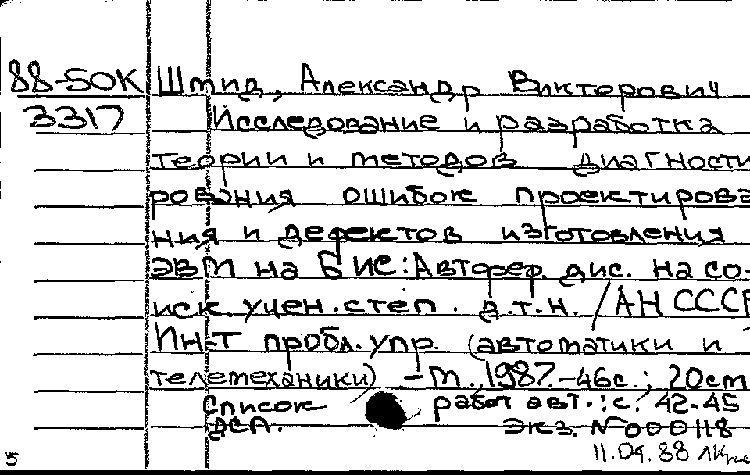 88-50К Шмид, Александр Викторович
3317 Исследование и разработка
теории и методов диагности
рования ошибок проектирова
ния и дефектов изготовления
ЭВМ на БИС: Автореф. дис. на со-
иск. учен. степ. д.т.н. / АН СССР
Ин-т пробл. упр. (автоматики и
телемеханики) – М., 1987. – 46с.; 20см
Список работ авт.: с. 42-45
ДСП. Экз. №000118
11.04.88
5